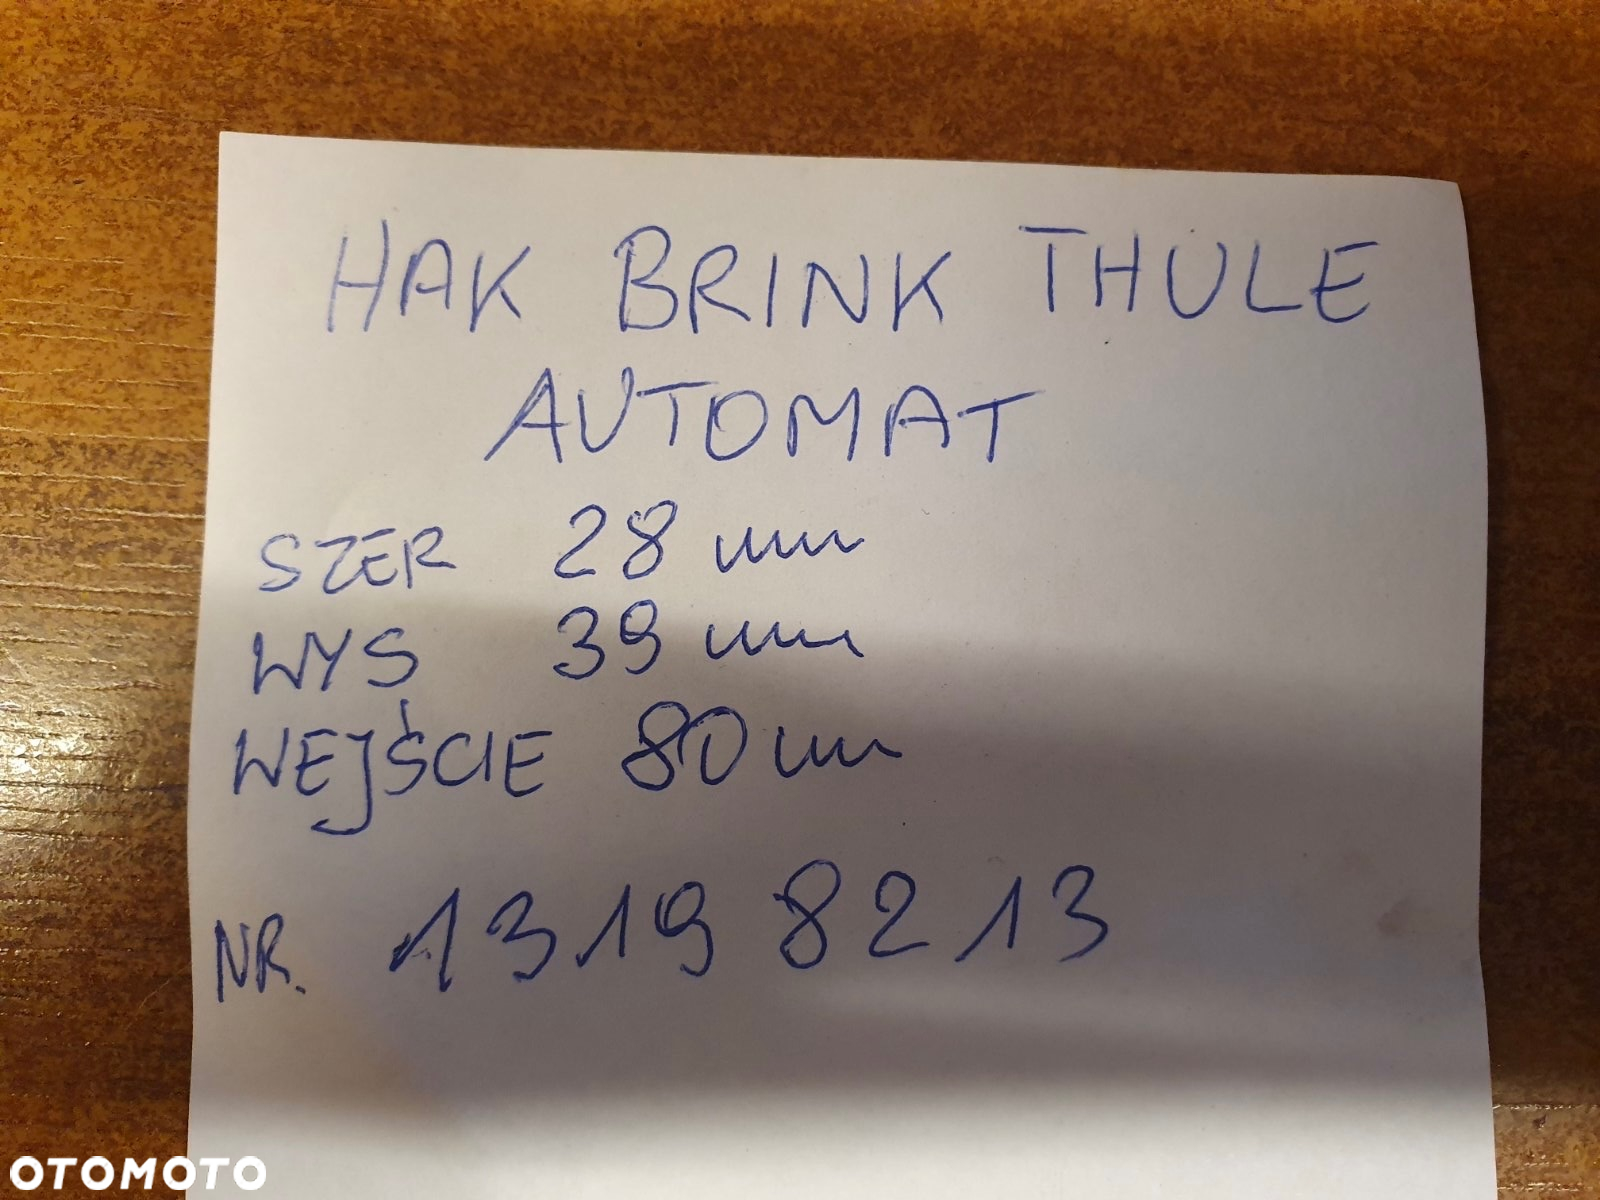 HAK BRINK THULE
AUTOMAT
SZER 28 mm
WYS 39 mm
WEJŚCIE 80 mm
NR. 13198213
OTOMOTO